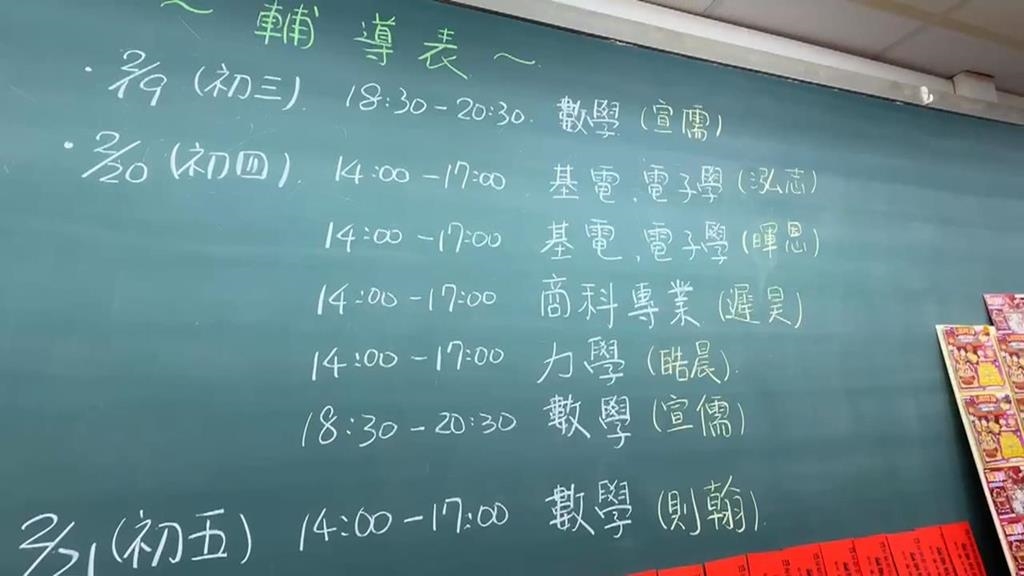 ～ 輔導表 ～
・2/19 (初三) 18:30-20:30 數學 (宣儒)
・2/20 (初四) 14:00-17:00 基電、電子學 (泓志)
14:00-17:00 基電、電子學 (暉恩)
14:00-17:00 商科專業 (遲昊)
14:00-17:00 力學 (皓晨)
18:30-20:30 數學 (宣儒)
2/21 (初五) 14:00-17:00 數學 (則翰)